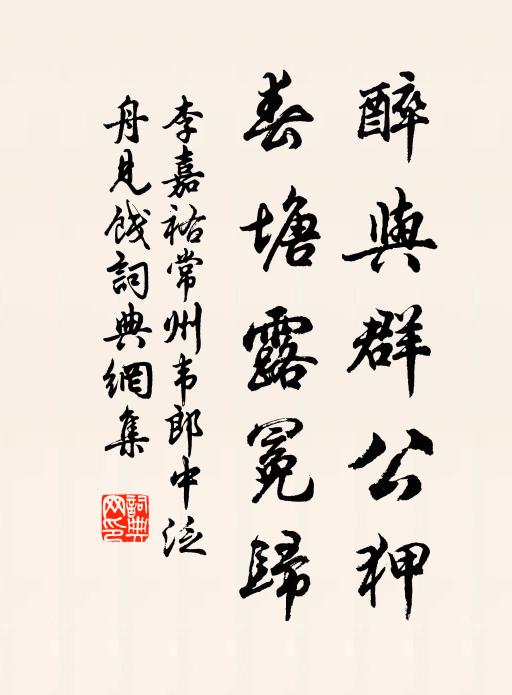 醉與群公狎
春塘露冕歸
李嘉祐常州韦郎中泛
舟见饯詞典網集
詞典
网印